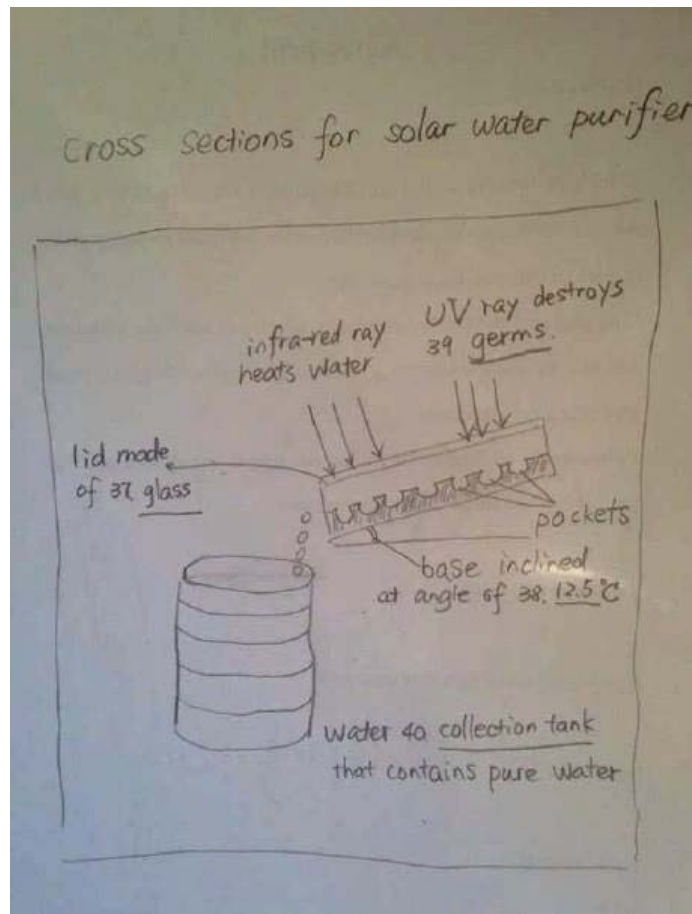 Cross sections for solar water purifier
infra-red ray
heats water
UV ray destroys
39 germs.
lid made
of 37 glass
pockets
base inclined
at angle of 38. 12.5°C
Water 40 collection tank
that contains pure water